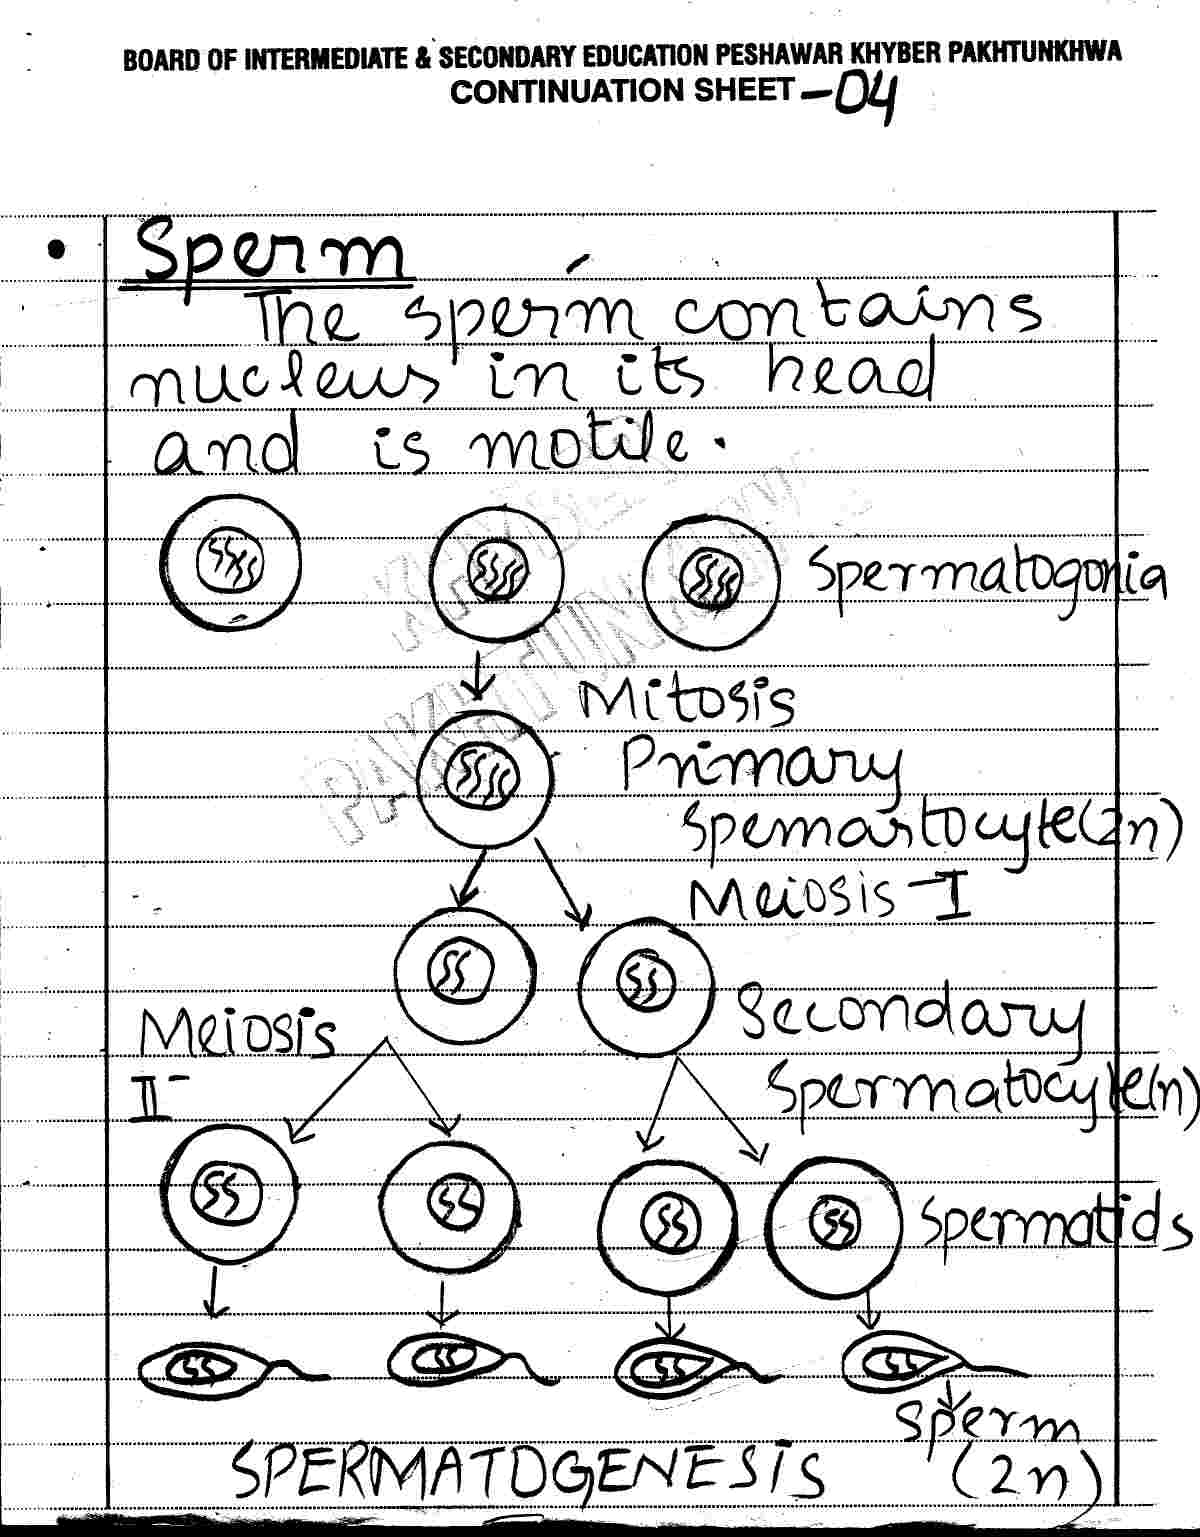 BOARD OF INTERMEDIATE & SECONDARY EDUCATION PESHAWAR KHYBER PAKHTUNKHWA
CONTINUATION SHEET -04
Sperm
The sperm contains
nucleus in its head
and is motile.
KHYBER
PAKHTUNKHWA
Spermatogonia
Mitosis
Primary
Spemastocyte(2n)
Meiosis-I
Meiosis
II
Secondary
Spermatocyte(n)
Spermatids
Sperm
(2n)
SPERMATOGENESIS